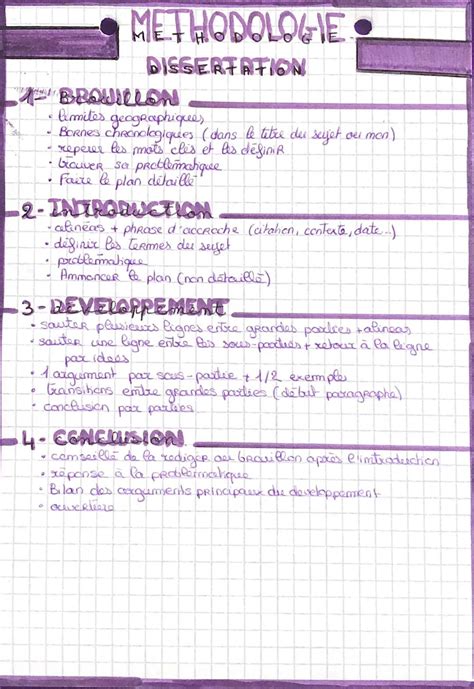 METHODOLOGIE
DISSERTATION
1- BROUILLON
• Limites géographiques
• Bornes chronologiques (dans le titre du sujet ou non)
• repérer les mots clés et les définir
• trouver sa problématique
• Faire le plan détaillé
2- INTRODUCTION
• alinéas + phrase d'accroche (citation, contexte, date...)
• définir les termes du sujet
• problématique
• Annoncer le plan (non détaillé)
3- DEVELOPPEMENT
• sauter plusieurs lignes entre grandes parties + alinéas
• sauter une ligne entre les sous-parties + retour à la ligne
par idées
• 1 argument par sous-partie + 1/2 exemples
• transitions entre grandes parties (début paragraphe)
• conclusion par parties
4- CONCLUSION
• conseillé de la rediger au brouillon après l'introduction
• réponse à la problématique
• Bilan des arguments principaux du developpement
• ouverture